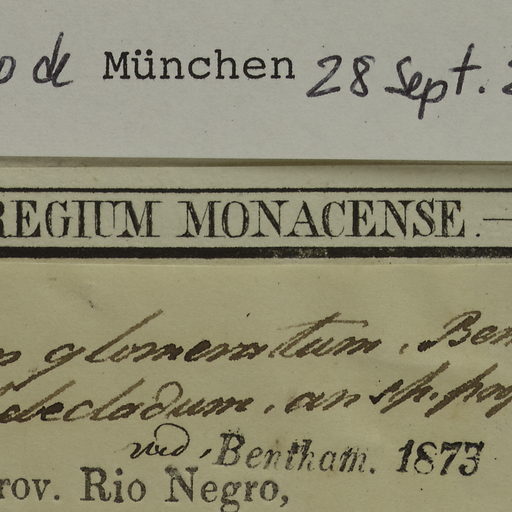 de München 28 Sept.
REGIUM MONACENSE.
glomeratum, Ben
decladum, an sp. pro
vid, Bentham. 1873
rov. Rio Negro,